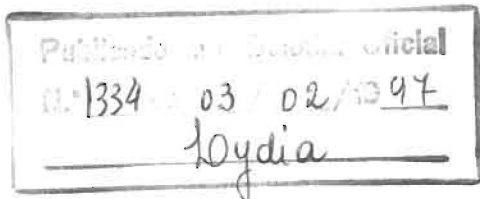 Publicado Boletim Oficial
N.º 1334 03 / 02 / 97
Lydia